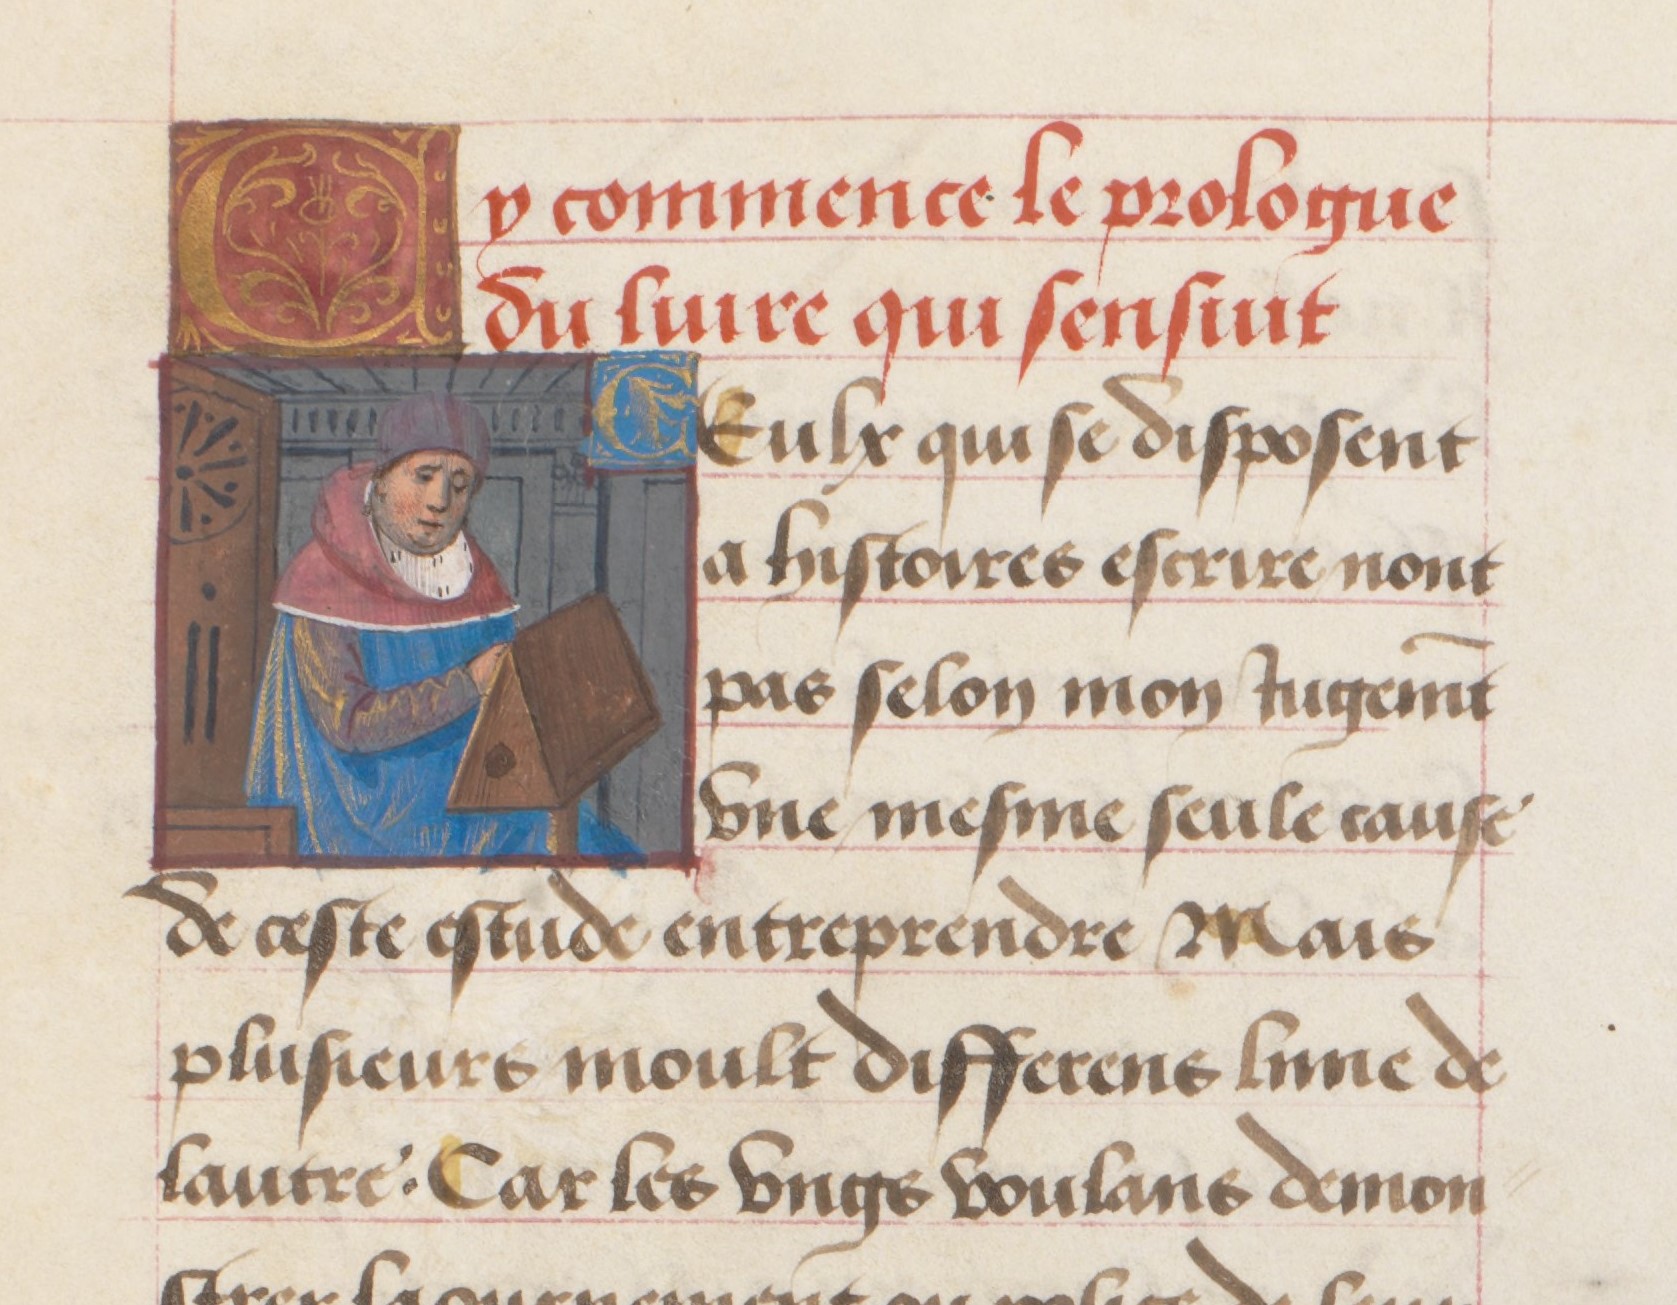 Cy commence le prologue
du liure qui sensuit
CEulx qui se disposent
a histoires escrire nont
pas selon mon Jugemt
vne mesme seule cause
de ceste estude entreprendre Mais
plusieurs moult differens lune de
lautre. Car les vngs voulans demon
strer laournement ou police de leur